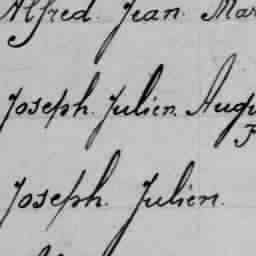 Alfred Jean
Joseph. Julien.
Joseph. Julien.